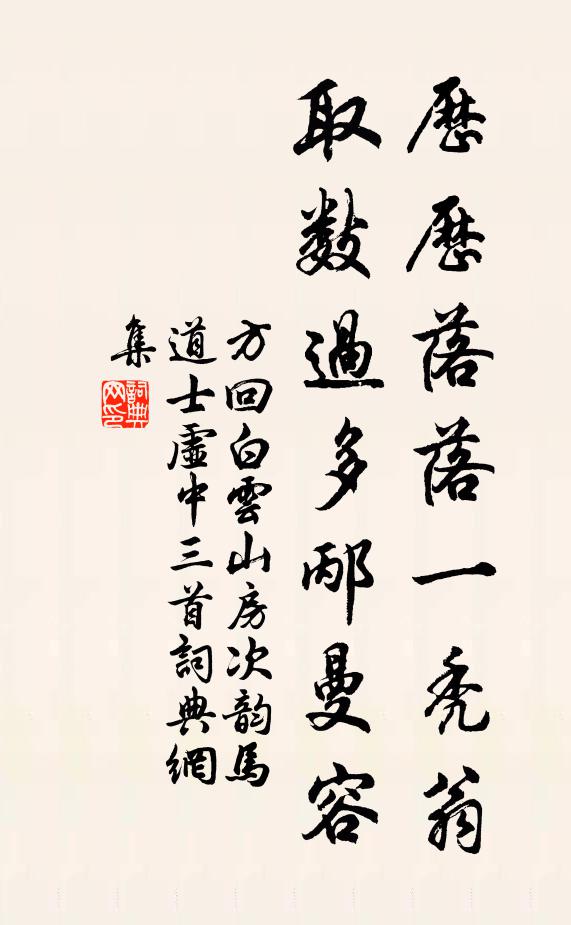 歷歷落落一禿翁
取數過多邴曼容
方回白雲山房次韵馬
道士虛中三首詞典網
集
詞典
网印